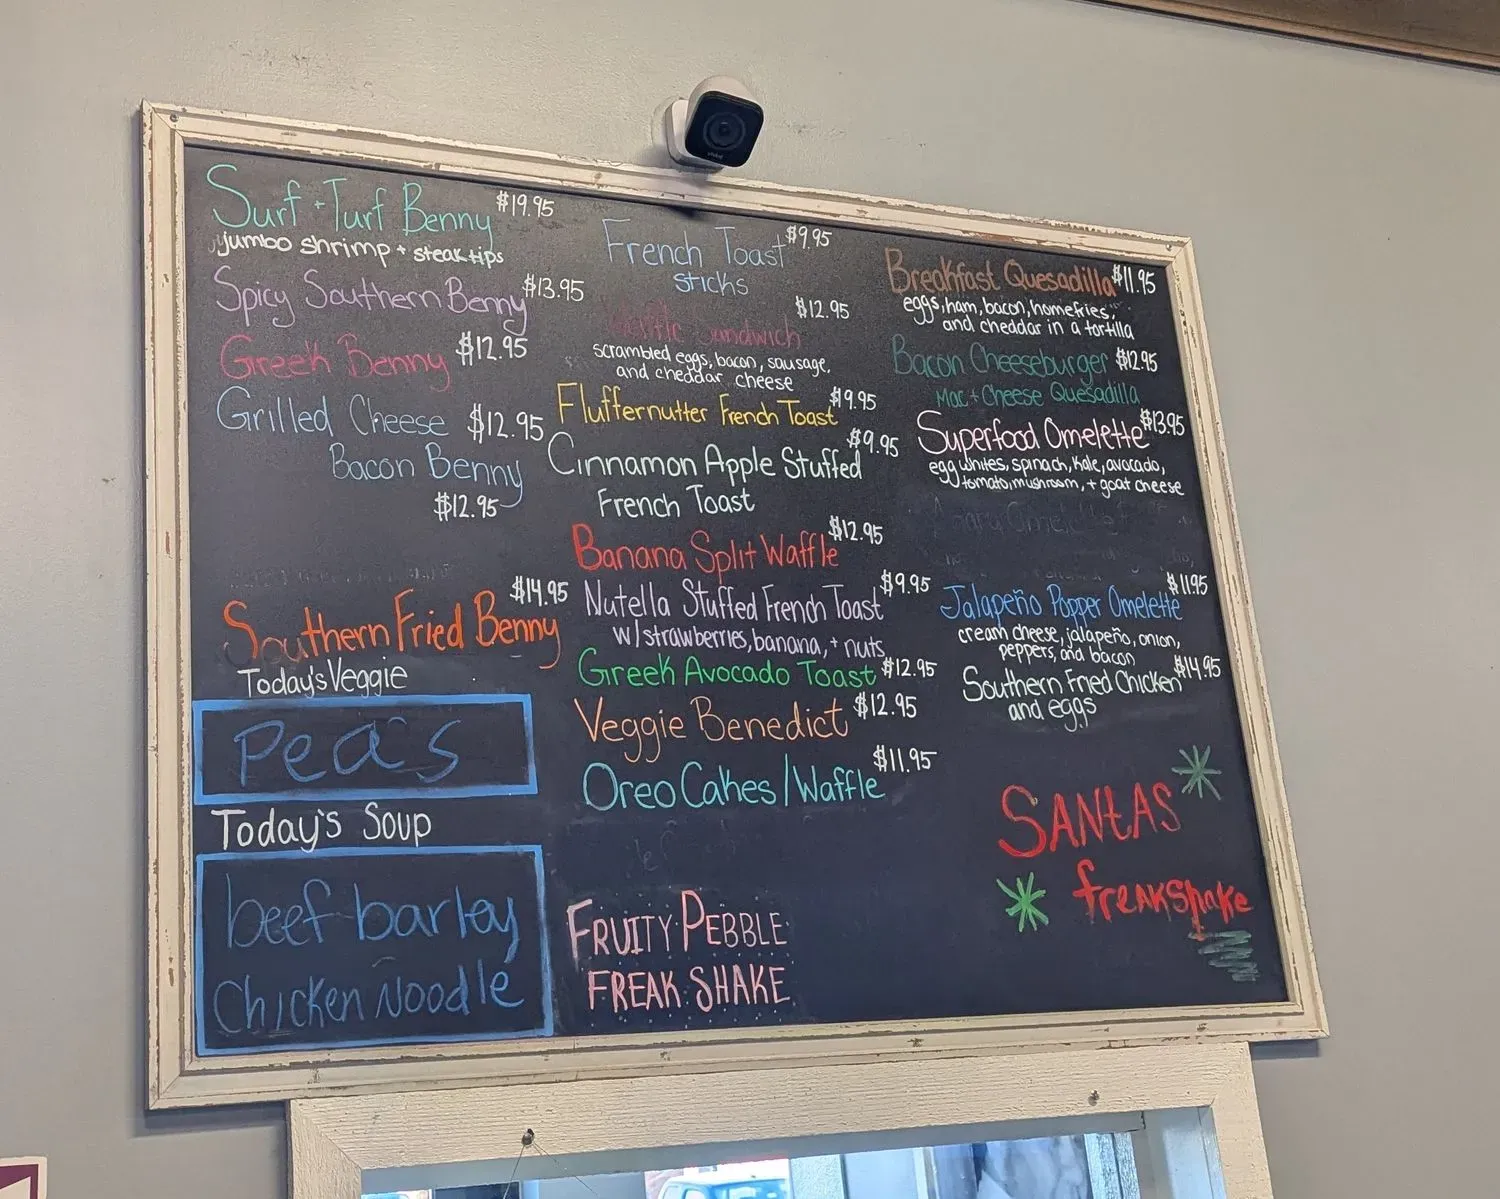 Surf + Turf Benny $19.95
jumbo shrimp + steak tips
Spicy Southern Benny $13.95
Greek Benny $12.95
Grilled Cheese $12.95
Bacon Benny
$12.95
Southern Fried Benny $14.95
Today's Veggie
Peas
Today's Soup
beef barley
Chicken Noodle
French Toast $9.95
Sticks
Waffle Sandwich $12.95
scrambled eggs, bacon, sausage,
and cheddar cheese
Fluffernutter French Toast $9.95
Cinnamon Apple Stuffed $9.95
French Toast
Banana Split Waffle $12.95
Nutella Stuffed French Toast $9.95
w/strawberries, banana, + nuts
Greek Avocado Toast $12.95
Veggie Benedict $12.95
Oreo Cakes/Waffle $11.95
Fruity Pebble
Freak Shake
Breakfast Quesadilla $11.95
eggs, ham, bacon, homefries,
and cheddar in a tortilla
Bacon Cheeseburger $12.95
Mac + Cheese Quesadilla
Superfood Omelette $13.95
egg whites, spinach, kale, avocado,
tomato, mushroom, + goat cheese
Jalapeño Popper Omelette $11.95
cream cheese, jalapeño, onion,
peppers, and bacon
Southern Fried Chicken $14.95
and eggs
SANtAS
freakshake